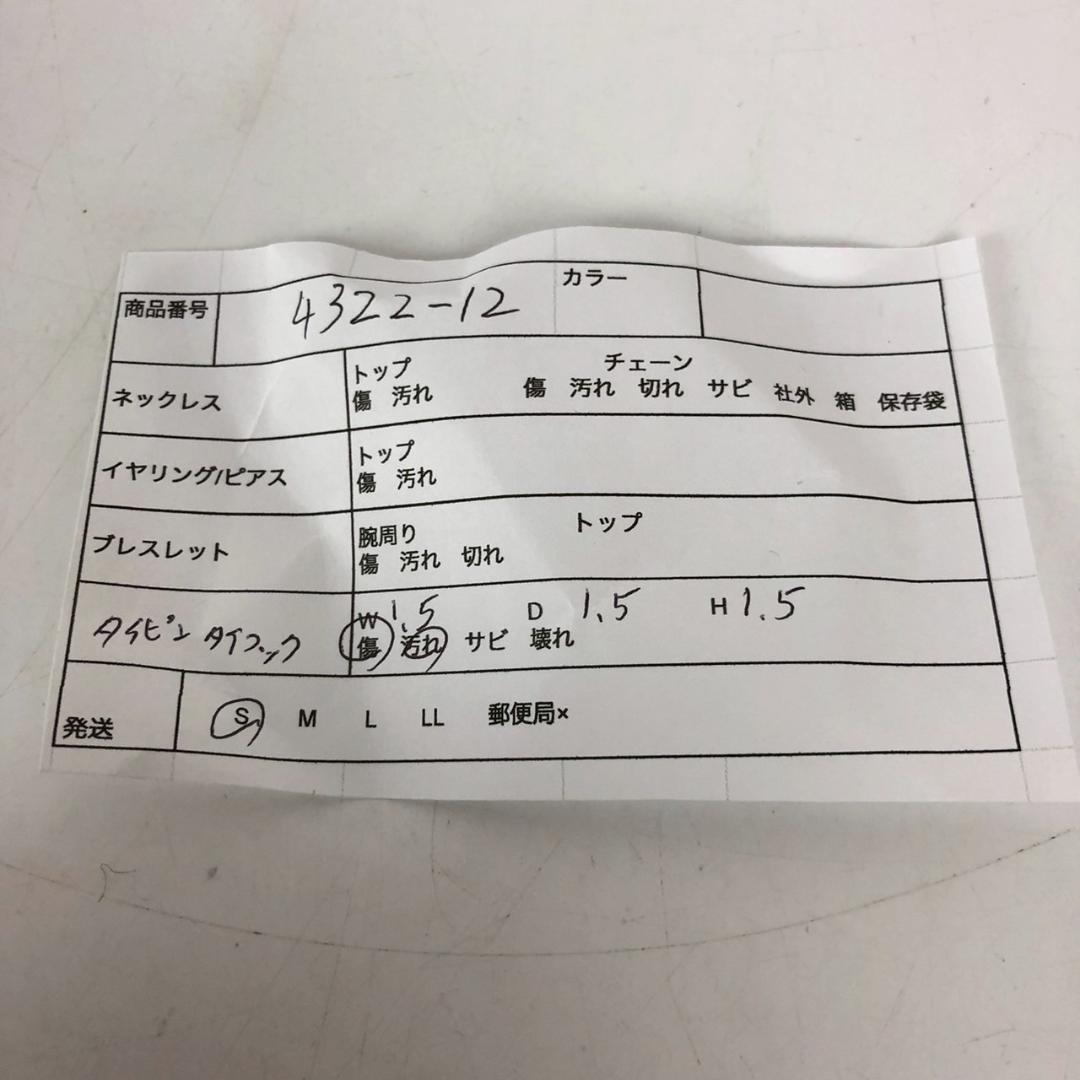 商品番号 4322-12 カラー
ネックレス トップ チェーン
傷 汚れ 傷 汚れ 切れ サビ 社外 箱 保存袋
イヤリング/ピアス トップ
傷 汚れ
ブレスレット 腕周り トップ
傷 汚れ 切れ
タイピン タイフック W 1.5 D 1.5 H 1.5
傷 汚れ サビ 壊れ
発送 S M L LL 郵便局×